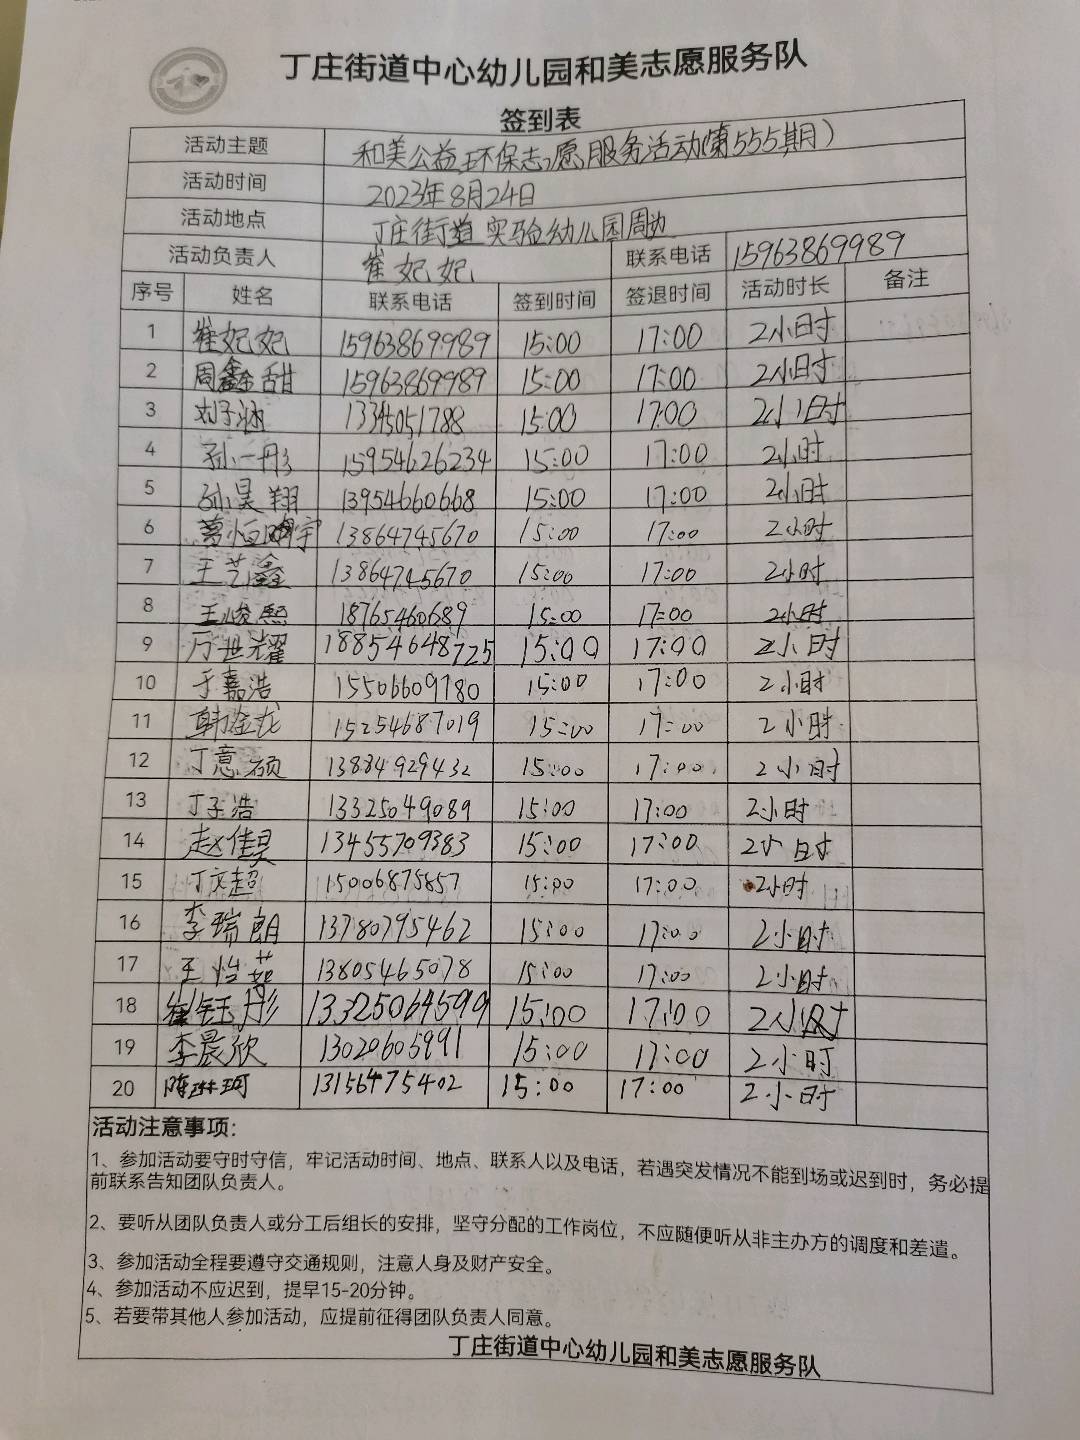 丁庄街道中心幼儿园和美志愿服务队
签到表
活动主题 和美公益环保志愿服务活动(第555期)
活动时间 2023年8月24日
活动地点 丁庄街道实验幼儿园周边
活动负责人 崔妃妃 联系电话 15963869989
序号 姓名 联系电话 签到时间 签退时间 活动时长 备注
1 崔妃妃 15963869989 15:00 17:00 2小时
2 周鑫甜 15963869989 15:00 17:00 2小时
3 刘子涵 13345051788 15:00 17:00 2小时
4 孙一彤 15954626234 15:00 17:00 2小时
5 孙昊翔 13954660668 15:00 17:00 2小时
6 13864745670 15:00 17:00 2小时
7 王艺鑫 13864745670 15:00 17:00 2小时
8 王峻熙 18765460689 15:00 17:00 2小时
9 万世耀 18854648725 15:00 17:00 2小时
10 于嘉浩 15506609780 15:00 17:00 2小时
11 韩金龙 15254687019 15:00 17:00 2小时
12 丁意硕 13884929432 15:00 17:00 2小时
13 丁子浩 13325049089 15:00 17:00 2小时
14 赵佳昊 13455709383 15:00 17:00 2小时
15 丁文超 15006875857 15:00 17:00 2小时
16 李瑞朗 13780795462 15:00 17:00 2小时
17 王怡茹 13805465078 15:00 17:00 2小时
18 崔钰彤 13325064599 15:00 17:00 2小时
19 李晨欣 13020605991 15:00 17:00 2小时
20 陈琳珂 13156475402 15:00 17:00 2小时
活动注意事项:
1、参加活动要守时守信，牢记活动时间、地点、联系人以及电话，若遇突发情况不能到场或迟到时，务必提
前联系告知团队负责人。
2、要听从团队负责人或分工后组长的安排，坚守分配的工作岗位，不应随便听从非主办方的调度和差遣。
3、参加活动全程要遵守交通规则，注意人身及财产安全。
4、参加活动不应迟到，提早15-20分钟。
5、若要带其他人参加活动，应提前征得团队负责人同意。
丁庄街道中心幼儿园和美志愿服务队